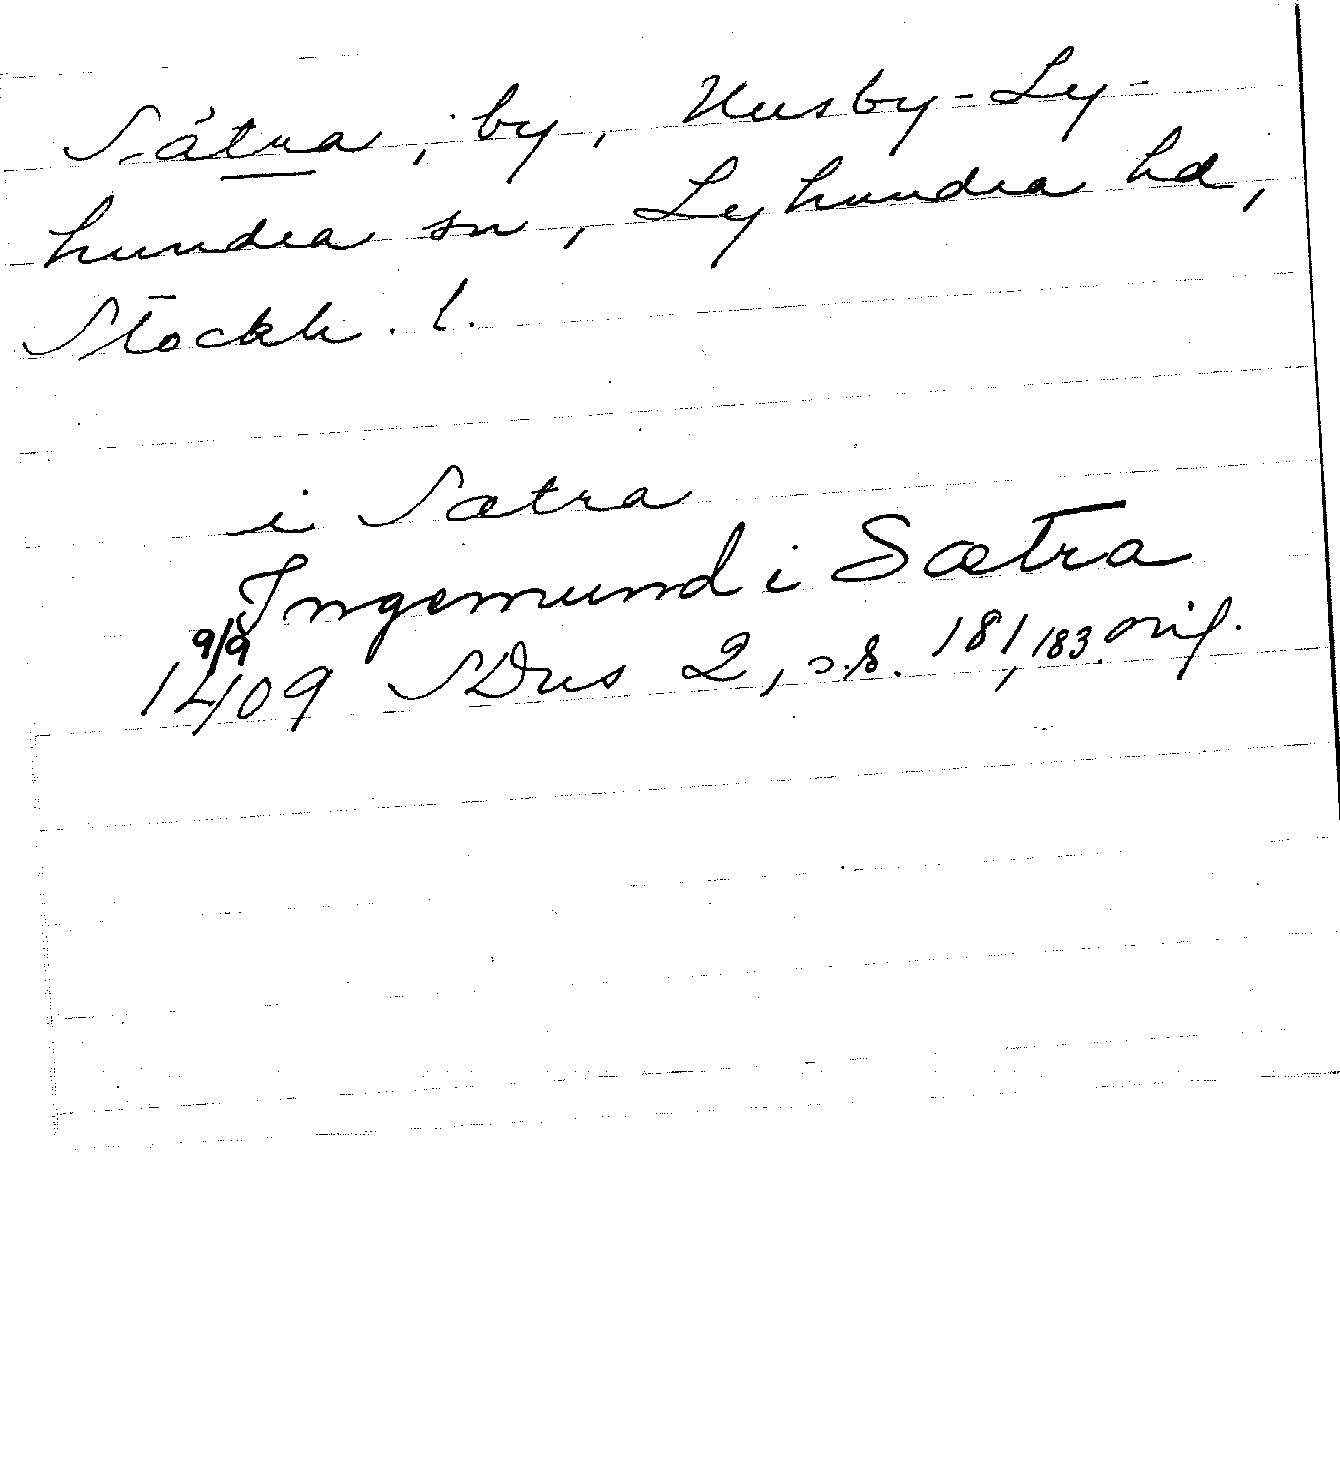 Sätra, by, Husby-Ly-
hundra sn, Lyhundra hd,
Stockh. l.
i Sætra
Ingemund i Sætra
9/9
1409 SDns 2, s. 181, 183. orig.